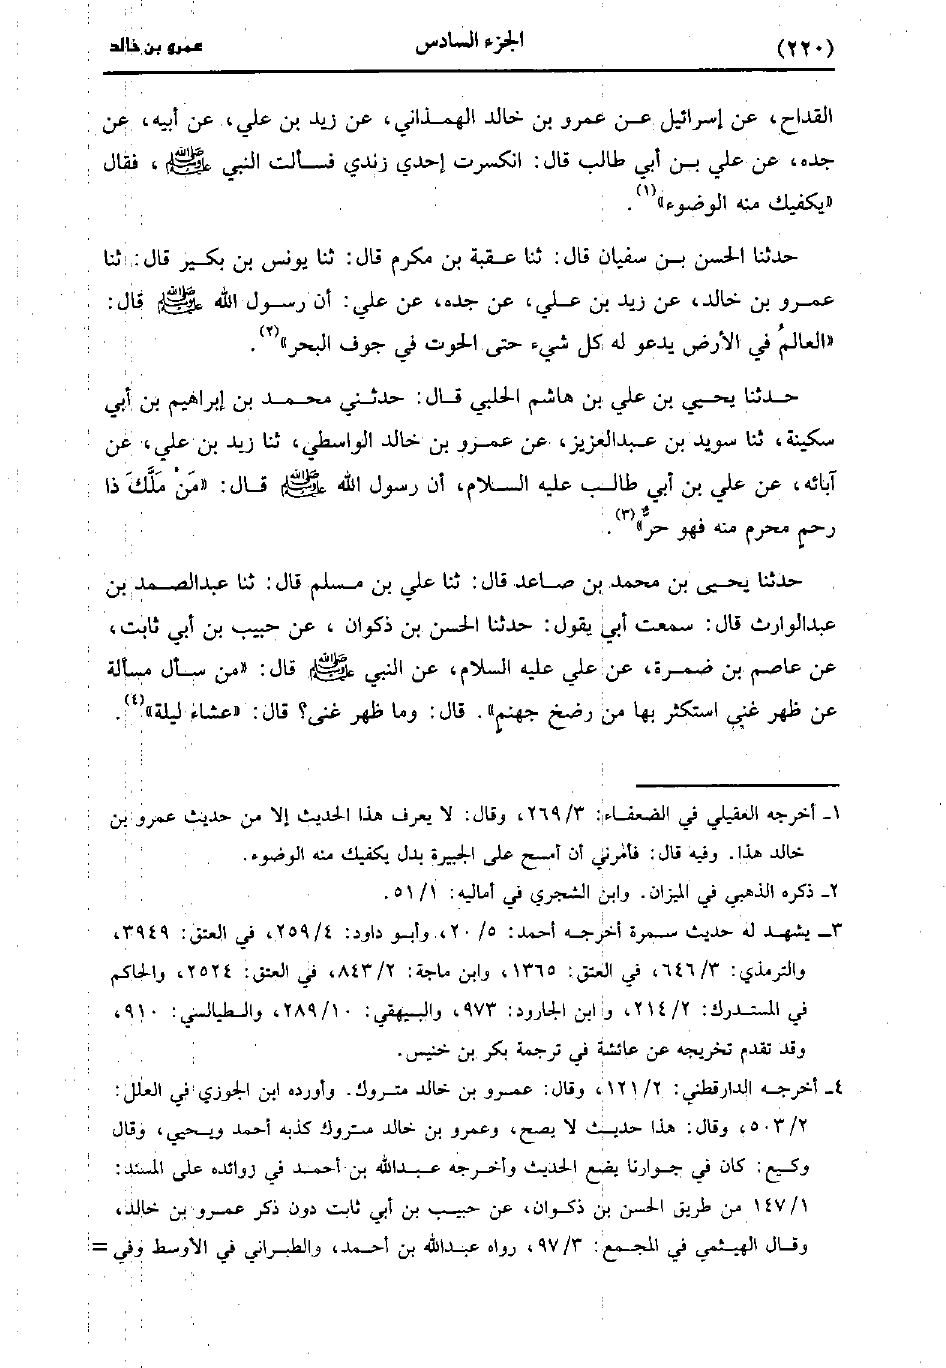 (٢٢٠) الجزء السادس عمرو بن خالد
القداح، عن إسرائيل عـن عمرو بن خالد الهمـذاني، عن زيد بن علي، عن أبيه، عن
جده، عن علي بـن أبي طالب قال: انكسرت إحدي زندي فـسألت النبي ﷺ ، فقال
«يكفيك منه الوضوء»(١).
حدثنا الحسن بـن سفيان قال: ثنا عـقبة بن مكرم قال: ثنا يونس بن بكـير قال: ثنا
عمـرو بن خالد، عن زيد بن عـلي، عن جده، عن علي: أن رسول الله ﷺ قال:
«العالمُ في الأرض يدعو له كل شيء حتى الحوت في جوف البحر»(٢).
حـدثنا يحـيي بن علي بن هاشم الحلبي قـال: حدثـني محمـد بن إبراهيم بن أبي
سكينة، ثنا سويد بن عـبدالعزيز، عن عمـرو بن خالد الواسطي، ثنا زيد بن علي، عن
آبائه، عن علي بن أبي طالـب عليه السلام، أن رسول الله ﷺ قـال: «مَنْ مَلَكَ ذا
رحمٍ محرم منه فهو حرٌ»(٣).
حدثنا يحـيى بن محمد بن صـاعد قال: ثنا علي بن مـسلم قال: ثنا عبدالصـمد بن
عبدالوارث قال: سمعت أبي يقول: حدثنا الحسن بن ذكوان ، عن حبيب بن أبي ثابت،
عن عاصم بن ضمـرة، عن علي عليه السلام، عن النبي ﷺ قال: «من سـأل مسألة
عن ظهر غني استكثر بها من رضخ جهنم». قال: وما ظهر غنى؟ قال: «عشاء ليلة»(٤).
١ـ أخرجه العقيلي في الضعفـاء: ٣/ ٢٦٩، وقال: لا يعرف هذا الحديث إلا من حديث عمرو بن
خالد هذا. وفيه قال: فأمرني أن أمسح على الجبيرة بدل يكفيك منه الوضوء.
٢ـ ذكره الذهبي في الميزان. وابن الشجري في أماليه: ١/ ٥١.
٣ـ يشهـد له حديث سـمرة أخرجـه أحمد: ٥/ ٢٠، وأبـو داود: ٤/ ٢٥٩، في العتق: ٣٩٤٩،
والترمذي: ٣/ ٦٤٦، في العتق: ١٣٦٥، وابن ماجة: ٢/ ٨٤٣، في العتق: ٢٥٢٤، والحاكم
في المستـدرك: ٢/ ٢١٤، و ابن الجارود: ٩٧٣، والبـيهقي: ١٠/ ٢٨٩، والـطيالسي: ٩١٠،
وقد تقدم تخريجه عن عائشة في ترجمة بكر بن خنيس.
٤ـ أخرجـه الدارقطني: ٢/ ١٢١، وقال: عمـرو بن خالد متروك. وأورده ابن الجوزي في العلل:
٢/ ٥٠٣، وقال: هذا حديـث لا يصح، وعمرو بن خالد متروك كذبه أحمد ويـحيي، وقال
وكـيع: كان في جـوارنا يضع الحديث وأخـرجه عـبدالله بن أحمـد في زوائده على المسند:
١/ ١٤٧ من طريق الحسن بن ذكـوان، عن حبيب بن أبي ثابت دون ذكر عمرو بن خالد،
وقـال الهيـثمي في المجمع: ٣/ ٩٧، رواه عبـدالله بن أحمد، والطبراني في الأوسط وفي =